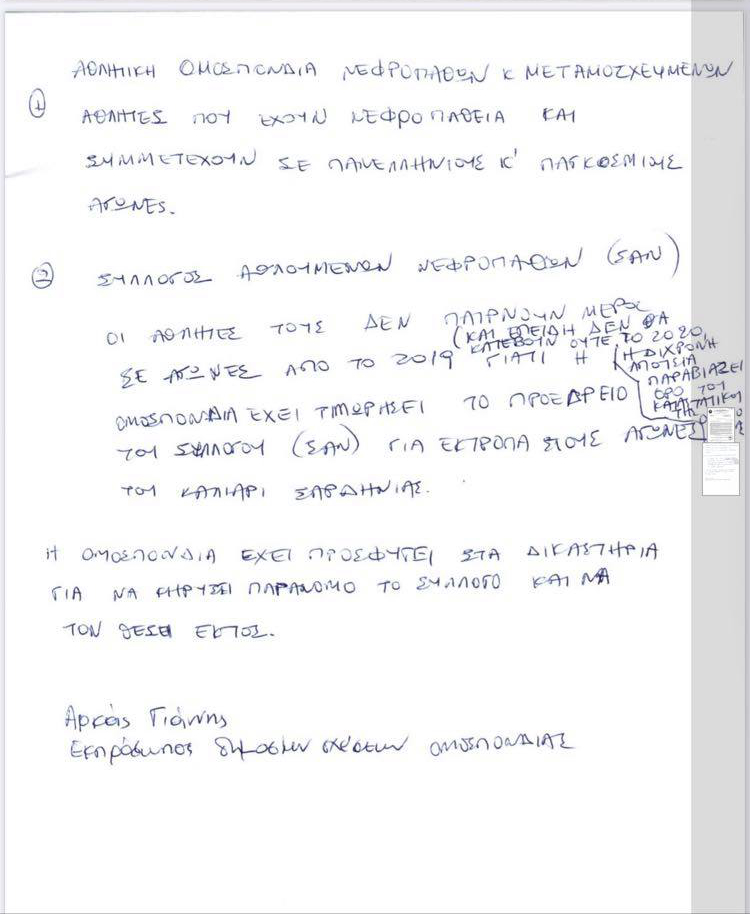 ① ΑΘΛΗΤΙΚΗ ΟΜΟΣΠΟΝΔΙΑ ΝΕΦΡΟΠΑΘΩΝ Κ ΜΕΤΑΜΟΣΧΕΥΜΕΝΩΝ
ΑΘΛΗΤΕΣ ΠΟΥ ΕΧΟΥΝ ΝΕΦΡΟΠΑΘΕΙΑ ΚΑΙ
ΣΥΜΜΕΤΕΧΟΥΝ ΣΕ ΠΑΝΕΛΛΗΝΙΟΥΣ Κ' ΠΑΓΚΟΣΜΙΟΥΣ
ΑΓΩΝΕΣ.
② ΣΥΛΛΟΓΟΣ ΑΘΛΟΥΜΕΝΩΝ ΝΕΦΡΟΠΑΘΩΝ (ΣΑΝ)
ΟΙ ΑΘΛΗΤΕΣ ΤΟΥΣ ΔΕΝ ΠΑΙΡΝΟΥΝ ΜΕΡΟΣ
(ΚΑΙ ΕΠΕΙΔΗ ΔΕΝ ΘΑ
ΚΑΤΕΒΟΥΝ ΟΥΤΕ ΤΟ 2020,
ΣΕ ΑΓΩΝΕΣ ΑΠΟ ΤΟ 2019 ΓΙΑΤΙ Η
(Η ΔΙΧΡΟΝΗ
ΑΠΟΥΣΙΑ
ΠΑΡΑΒΙΑΖΕΙ
ΟΡΟ ΤΟΥ
ΚΑΤΑΣΤΑΤΙΚΟΥ
ΟΜΟΣΠΟΝΔΙΑ ΕΧΕΙ ΤΙΜΩΡΗΣΕΙ ΤΟ ΠΡΟΕΔΡΕΙΟ
ΤΟΥ ΣΥΛΛΟΓΟΥ (ΣΑΝ) ΓΙΑ ΕΚΤΡΟΠΑ ΣΤΟΥΣ ΑΓΩΝΕΣ
ΤΟΥ ΚΑΛΙΑΡΙ ΣΑΡΔΗΝΙΑΣ.
Η ΟΜΟΣΠΟΝΔΙΑ ΕΧΕΙ ΠΡΟΣΦΥΓΕΙ ΣΤΑ ΔΙΚΑΣΤΗΡΙΑ
ΓΙΑ ΝΑ ΚΗΡΥΞΕΙ ΠΑΡΑΝΟΜΟ ΤΟ ΣΥΛΛΟΓΟ ΚΑΙ ΝΑ
ΤΟΝ ΘΕΣΕΙ ΕΚΤΟΣ.
Αρκάς Γιάννης
Εκπρόσωπος δημοσίων σχέσεων ΟΜΟΣΠΟΝΔΙΑΣ